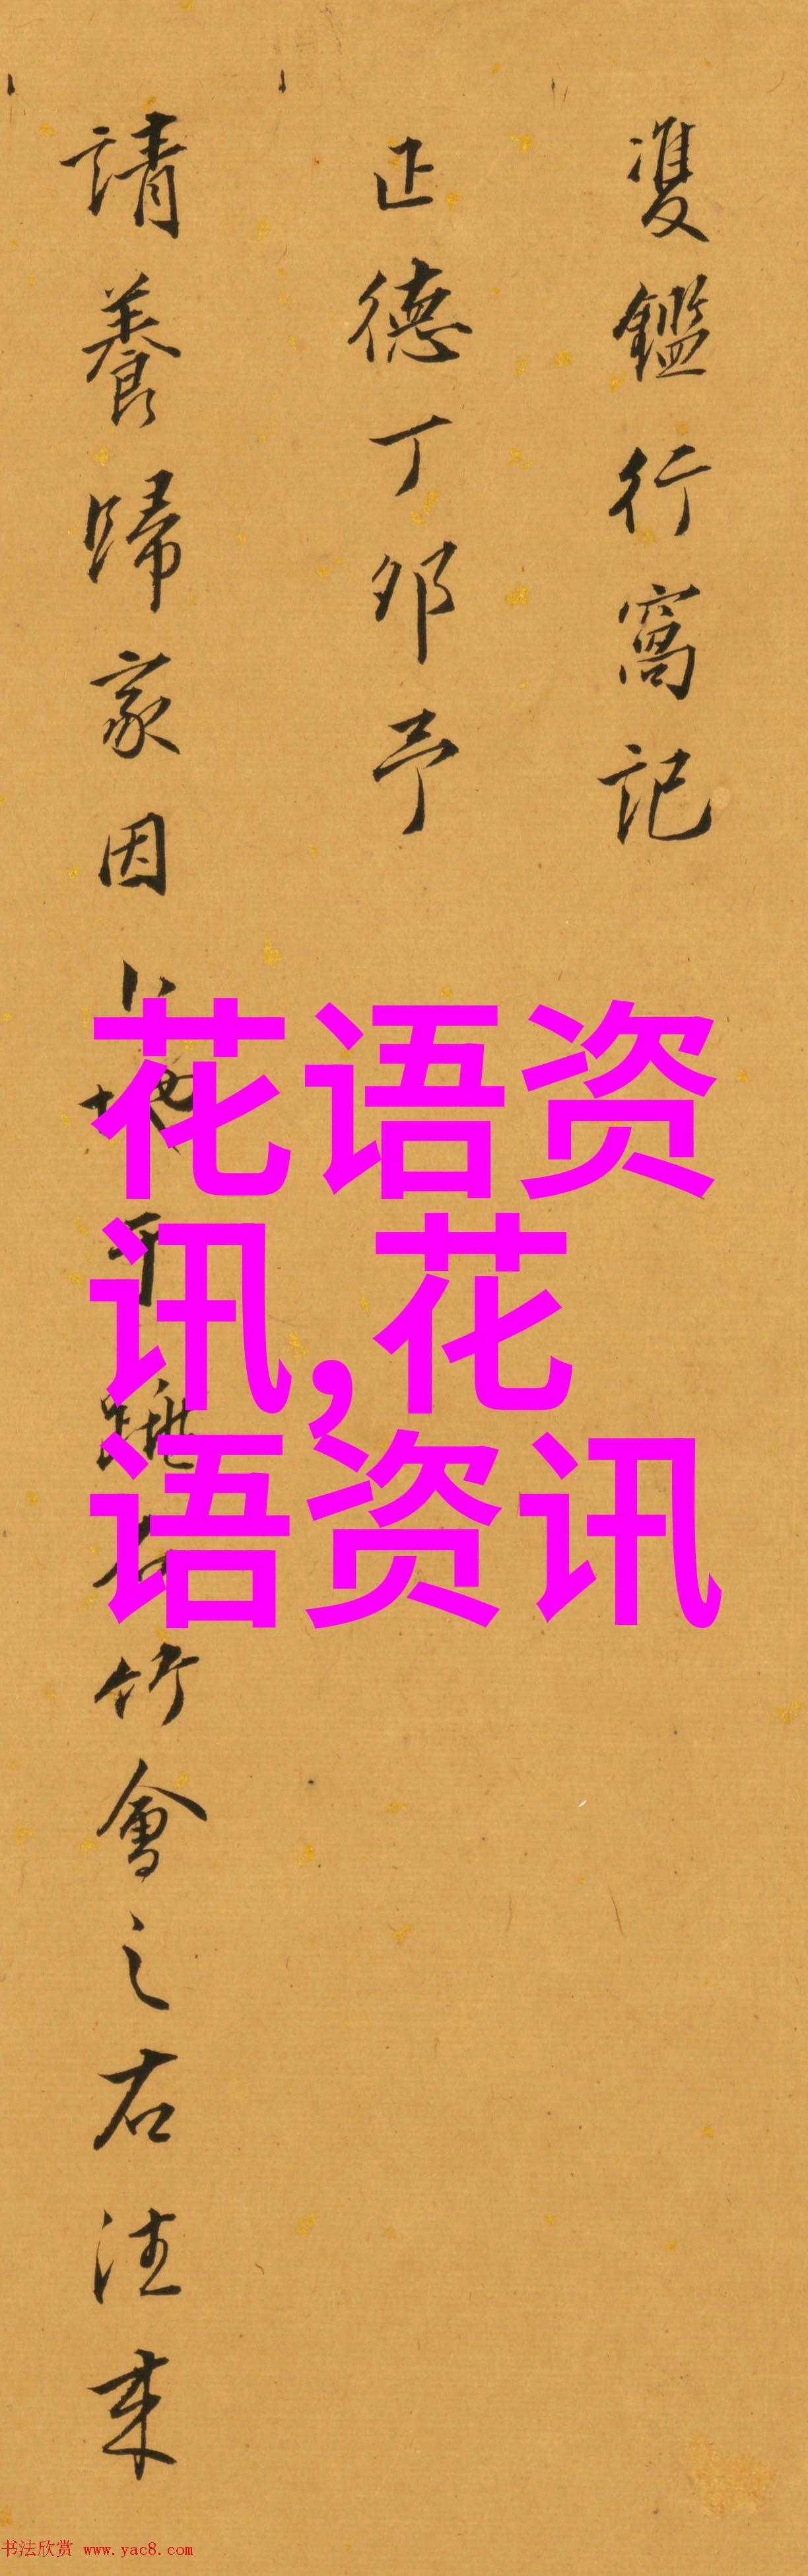 雙鑑行窩記
正德丁卯予
請養歸家因卜地平跳石竹會之右往来
花语资
讯,花
语资讯
书法欣赏 www.yac8.com